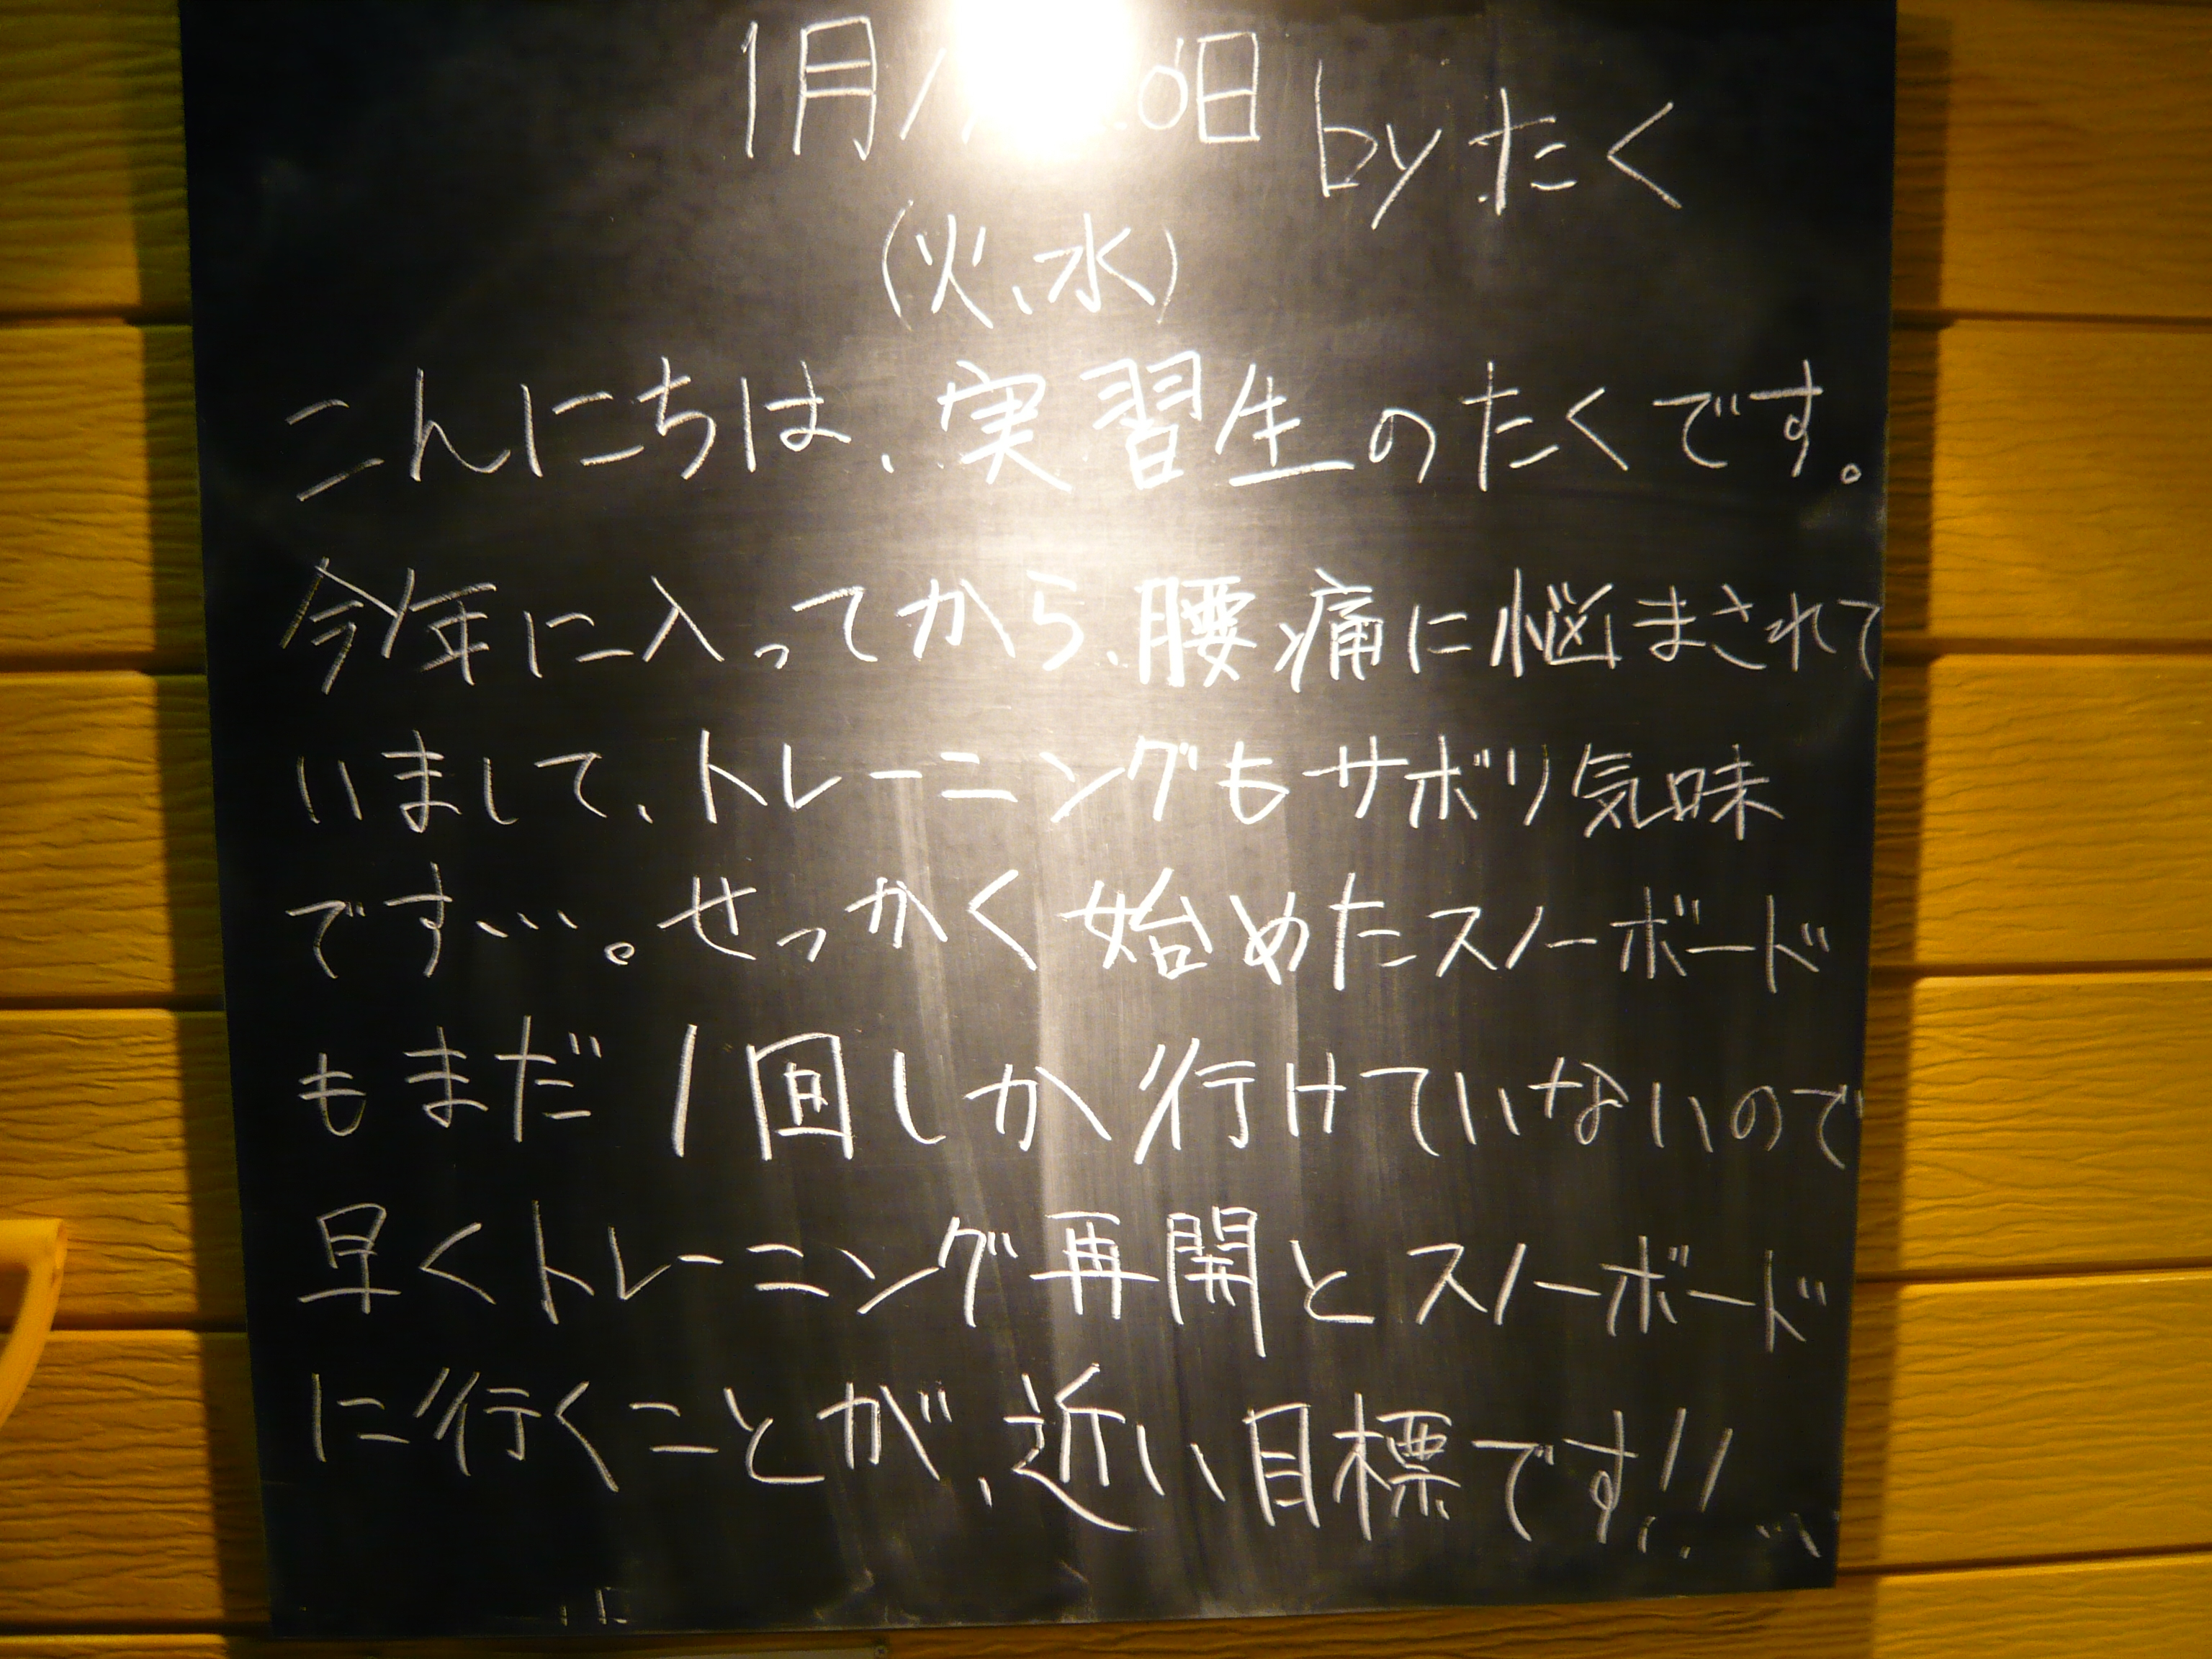 1月 日 by たく
(火、水)
こんにちは、実習生のたくです。
今年に入ってから、腰痛に悩まされて
いまして、トレーニングもサボリ気味
です…。せっかく始めたスノーボード
もまだ1回しか行けていないので
早くトレーニング再開とスノーボード
に行くことが、近い目標です!!